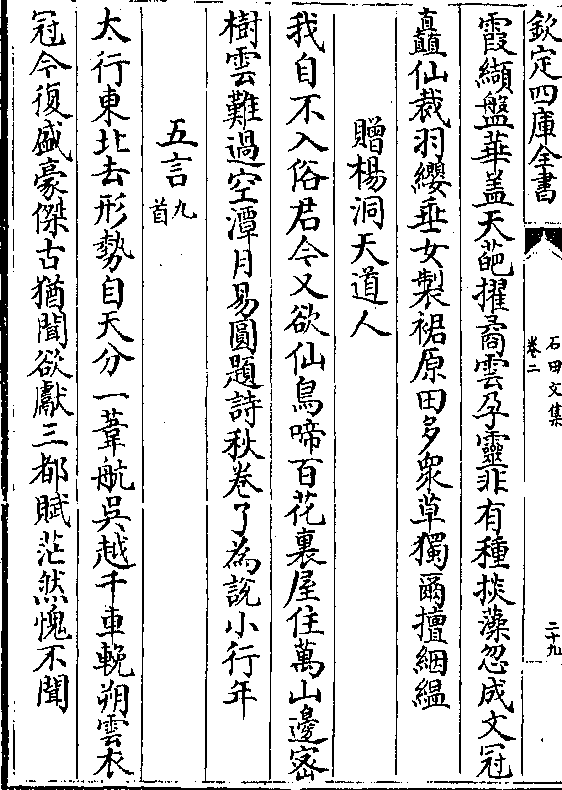 欽定四庫全書
石田文集
卷二
二十九
霞纈盤華盖天葩擢矞雲孕靈非有種掞藻忽成文冠
矗仙裁羽纓垂女製裙原田多衆草獨爾擅絪緼
贈楊洞天道人
我自不入俗君今又欲仙鳥啼百花裏屋住萬山邊宻
樹雲難過空潭月易圓題詩秋卷了為說小行年
五言九首
大行東北去形勢自天分一葦航吳越千車輓朔雲衣
冠今復盛豪傑古猶聞欲獻三都賦茫然愧不聞